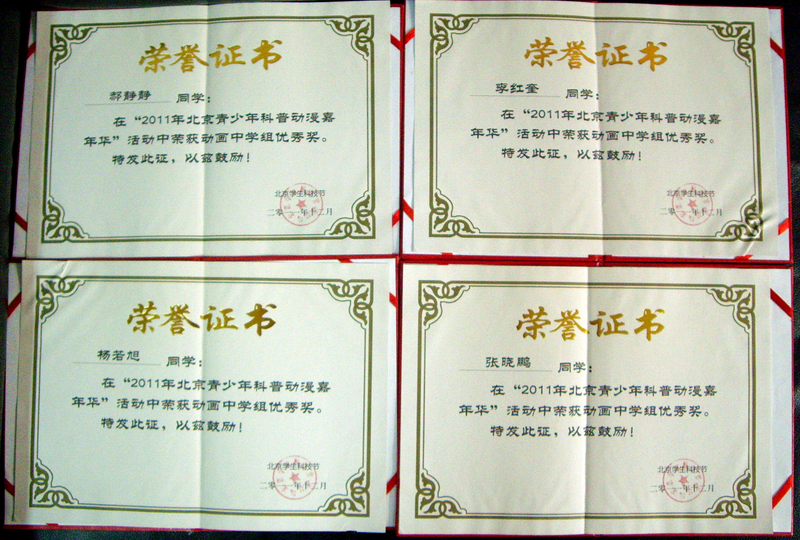 荣誉证书
郝静静 同学：
在“2011年北京青少年科普动漫嘉
年华”活动中荣获动画中学组优秀奖。
特发此证，以兹鼓励！
北京学生科技节
二〇一一年十二月
荣誉证书
李红奎 同学：
在“2011年北京青少年科普动漫嘉
年华”活动中荣获动画中学组优秀奖。
特发此证，以兹鼓励！
北京学生科技节
二〇一一年十二月
荣誉证书
杨若旭 同学：
在“2011年北京青少年科普动漫嘉
年华”活动中荣获动画中学组优秀奖。
特发此证，以兹鼓励！
北京学生科技节
二〇一一年十二月
荣誉证书
张晓鹏 同学：
在“2011年北京青少年科普动漫嘉
年华”活动中荣获动画中学组优秀奖。
特发此证，以兹鼓励！
北京学生科技节
二〇一一年十二月